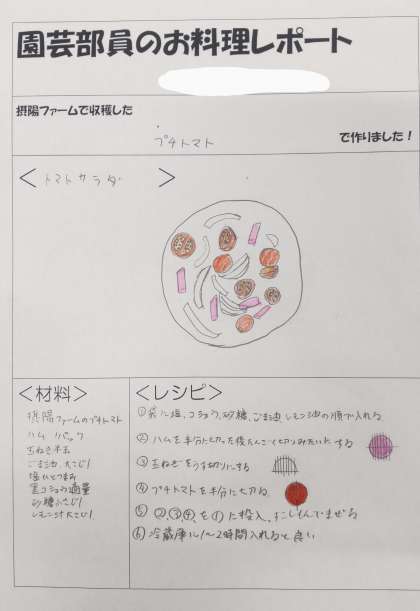 園芸部員のお料理レポート
摂陽ファームで収穫した
プチトマト
で作りました！
＜トマトサラダ＞
＜材料＞
摂陽ファームのプチトマト
ハム
玉ねぎ
ごま油 大さじ1
塩ひとつまみ
黒コショウ適量
砂糖
レモン汁大さじ1
＜レシピ＞
①袋に塩、コショウ、砂糖、ごま油、レモン汁の順で入れる
②ハムを半分に切った後たんざく切りみたいにする
③玉ねぎをうす切りにする
④プチトマトを半分に切る。
⑤②③④を①に投入、すこしもんでまぜる
⑥冷蔵庫に1〜2時間入れると良い